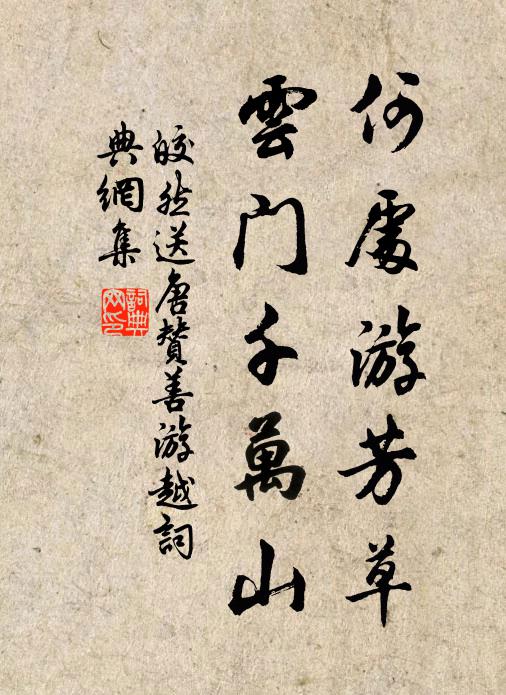 何處游芳草
雲門千萬山
皎然送唐贊善游越詞
典網集
詞典
网印